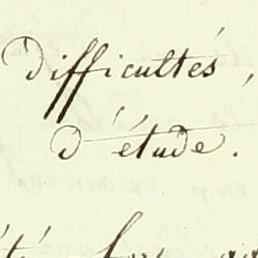 difficultés,
d'étude.